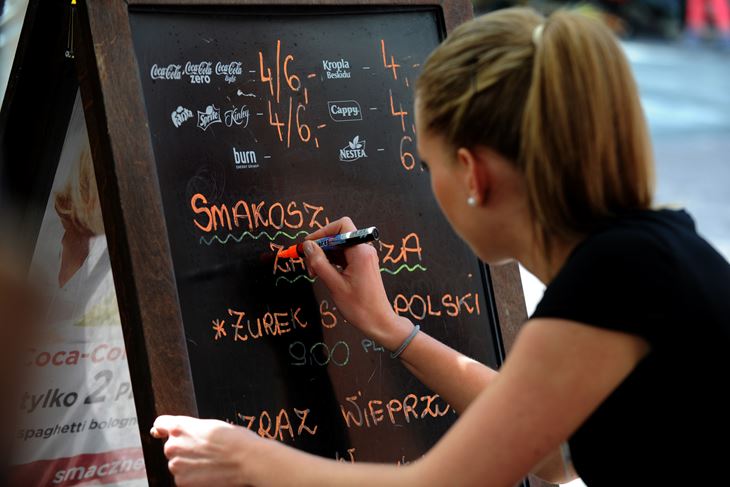 Coca-Cola Coca-Cola zero Coca-Cola light - 4/6,- Kropla Beskidu - 4,-
Fanta Sprite Kinley - 4/6,- Cappy - 4,-
burn - NESTEA - 6
SMAKOSZ
ZA ZA
*ŻUREK S POLSKI
9,00
*ZRAZ WIEPRZ
Coca-Co
tylko 2 P
spaghetti bologn
smaczne